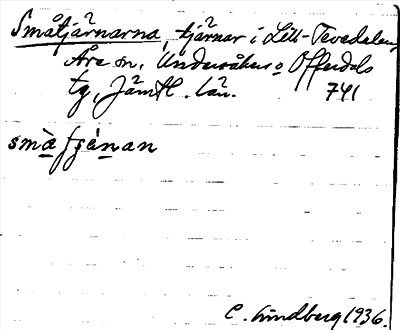 Småtjärnarna, tjärnar i Lill-Tevedalen,
Åre sn, Undersåkers o Offerdals
tg, Jämtl. län. 741
småtjɛ́nan
C. Lindberg 1936.